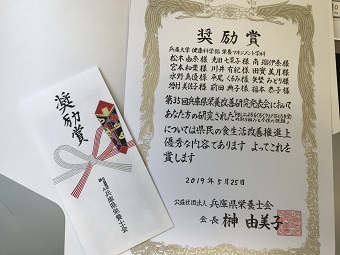 奨励賞
公益社団法人兵庫県栄養士会
奨励賞
兵庫大学 健康科学部 栄養マネジメント学科
松本 由奈 様
宮本 和葉 様
水野 真優 様
増村 美佐子 様
川井 有紀 様
平尾 くるみ 様
前田 典子 様
南 瑠伊奈 様
田實 美月 様
矢埜 みどり 様
福本 恭子 様
第35回兵庫県栄養改善研究発表会において
あなた方の研究された
については県民の食生活改善推進上
優秀な内容であります よってこれを
賞します
2019年5月25日
公益社団法人 兵庫県栄養士会
会長 榊 由美子